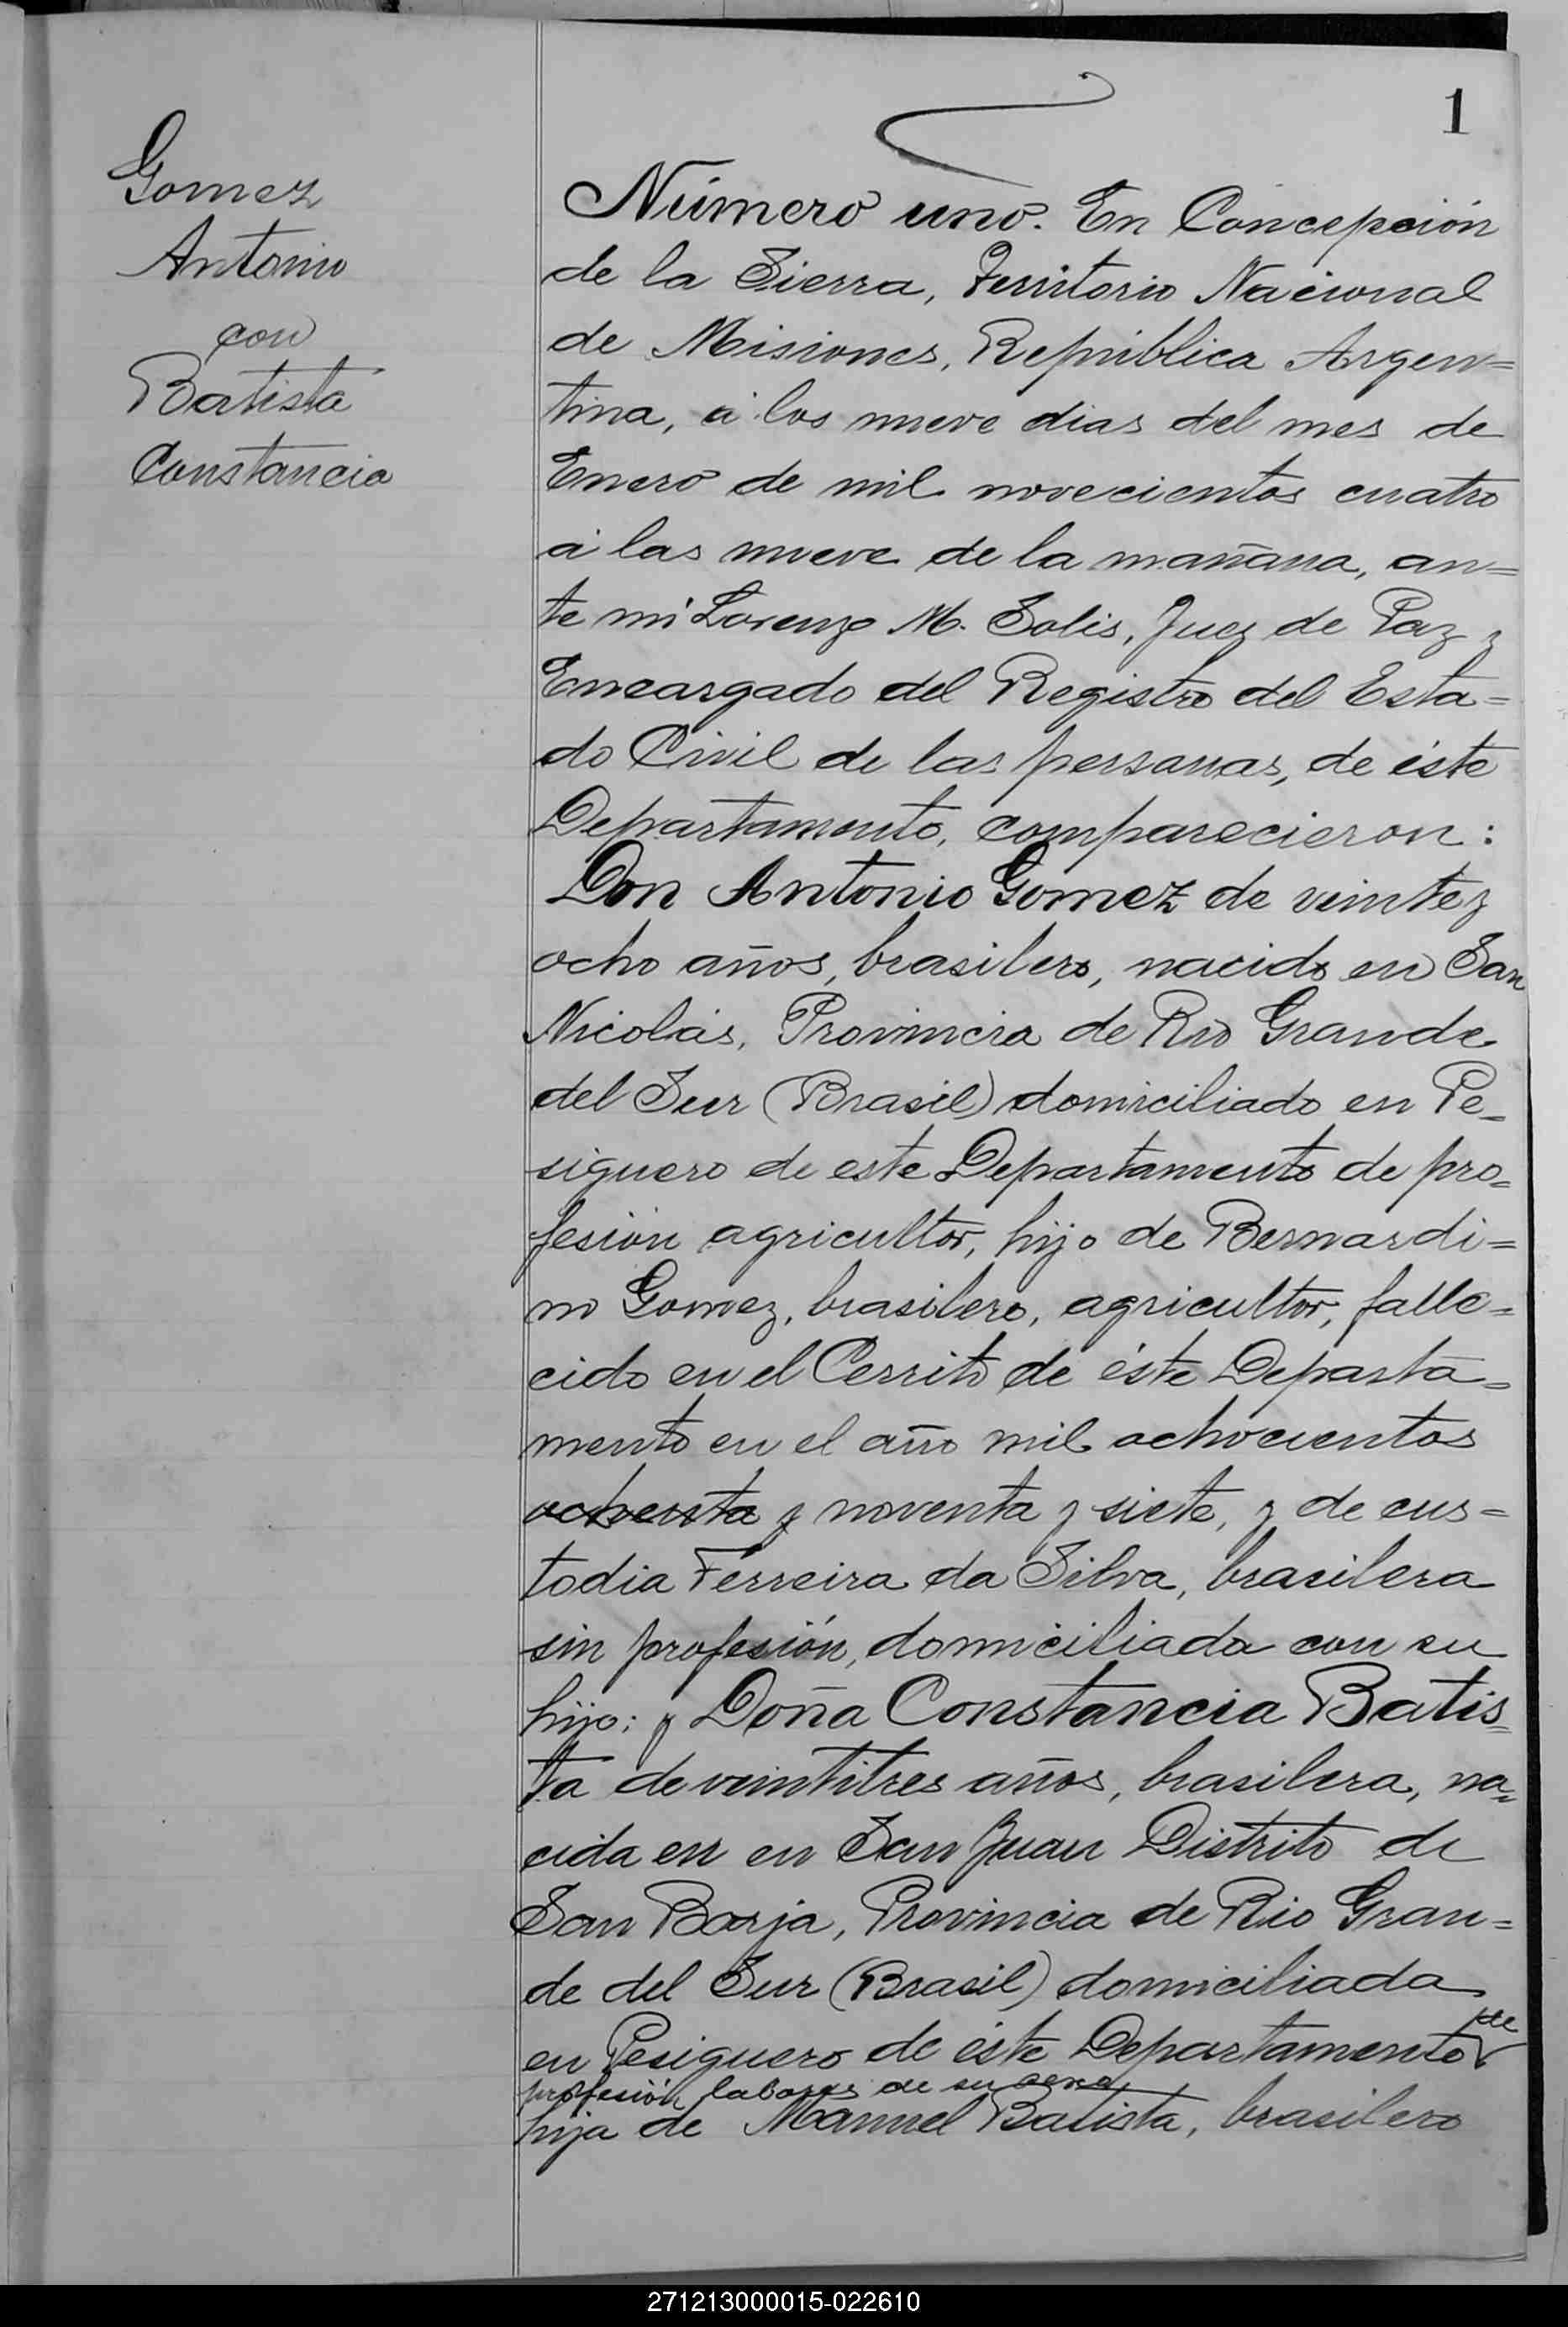 1
Gomez
Antonio
con
Batista
Constancia
Número uno. En Concepción
de la Sierra, Territorio Nacional
de Misiones, República Argen=
tina, á los nueve dias del mes de
Enero de mil novecientos cuatro
á las nueve de la mañana, an=
te mi Lorenzo M. Solis, Juez de Paz y
Encargado del Registro del Esta=
do Civil de las personas, de éste
Departamento, comparecieron:
Don Antonio Gomez de veinte y
ocho años, brasilero, nacido en San
Nicolás, Provincia de Rio Grande
del Sur (Brasil) domiciliado en Pe=
siguero de este Departamento de pro=
fesión agricultor, hijo de Bernardi=
no Gomez, brasilero, agricultor, falle=
cido en el Cerrito de éste Departa=
mento en el año mil ochocientos
ochenta y noventa y siete, y de cus=
todia Ferreira da Silva, brasilera
sin profesión, domiciliada con su
hijo; y Doña Constancia Batis=
ta de veintitres años, brasilera, na=
cida en en San Juan Distrito de
San Borja, Provincia de Rio Gran=
de del Sur (Brasil) domiciliada
en Pesiguero de éste Departamento de
profesión labores de su sexo
hija de Manuel Batista, brasilero
271213000015-022610